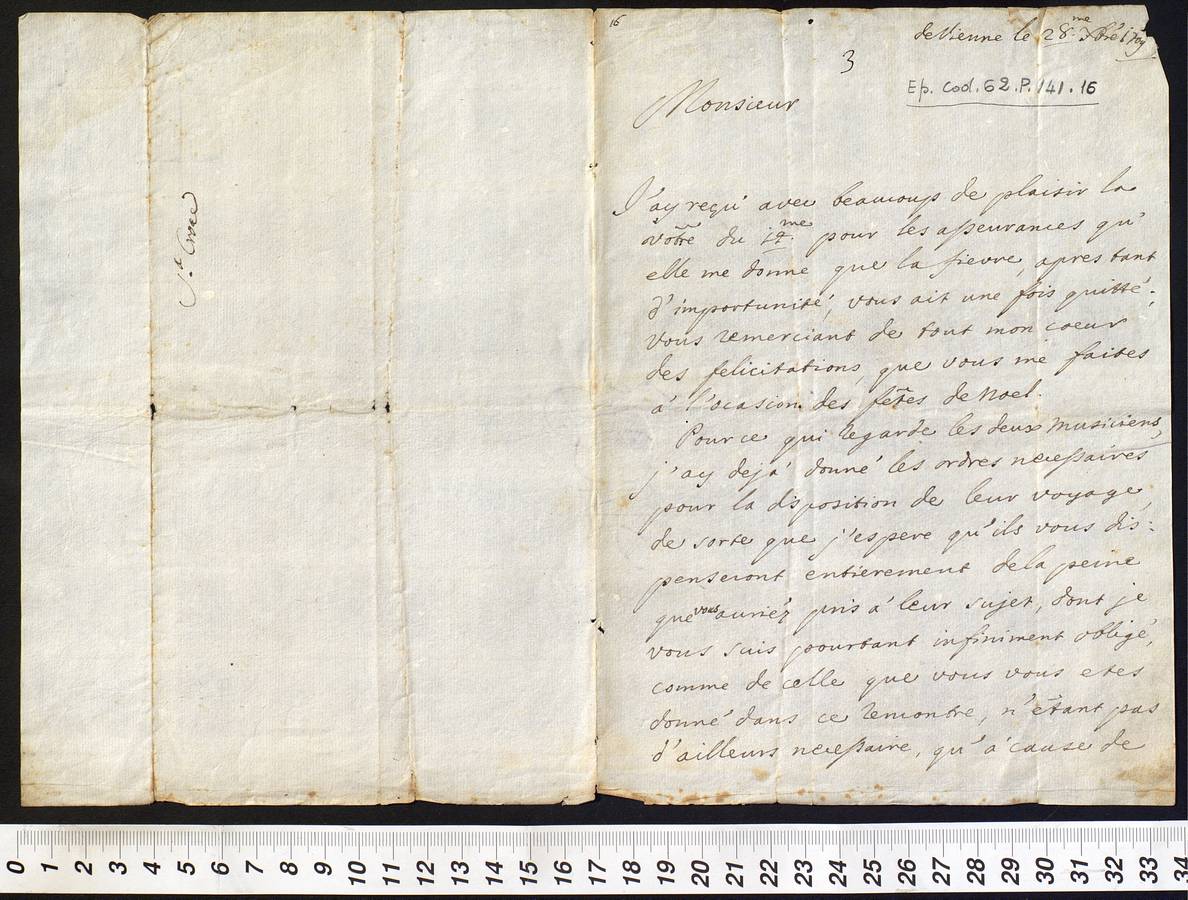 St. Croce
16
de Vienne le 28.me Xbre 1709
3
Ep. cod. 62. P. 141. 16
Monsieur
J'ay reçu avec beaucoup de plaisir la
vôtre du 14.me pour les asseurances qu'
elle me donne que la fievre, apres tant
d'importunité, vous ait une fois quitté;
vous remerciant de tout mon coeur
des felicitations que vous me faites
à l'ocasion des fêtes de Noel.
Pour ce qui regarde les deux musiciens,
j'ay dejà donné les ordres necessaires
pour la disposition de leur voyage,
de sorte que j'espere qu'ils vous dis:
penseront entierement dela peine
que vous auriéz pris à leur sujet, dont je
vous suis pourtant infiniment obligé,
comme de celle que vous vous etes
donné dans ce rencontre, n'étant pas
d'ailleurs necessaire, qu'à cause de
0 1 2 3 4 5 6 7 8 9 10 11 12 13 14 15 16 17 18 19 20 21 22 23 24 25 26 27 28 29 30 31 32 33 34